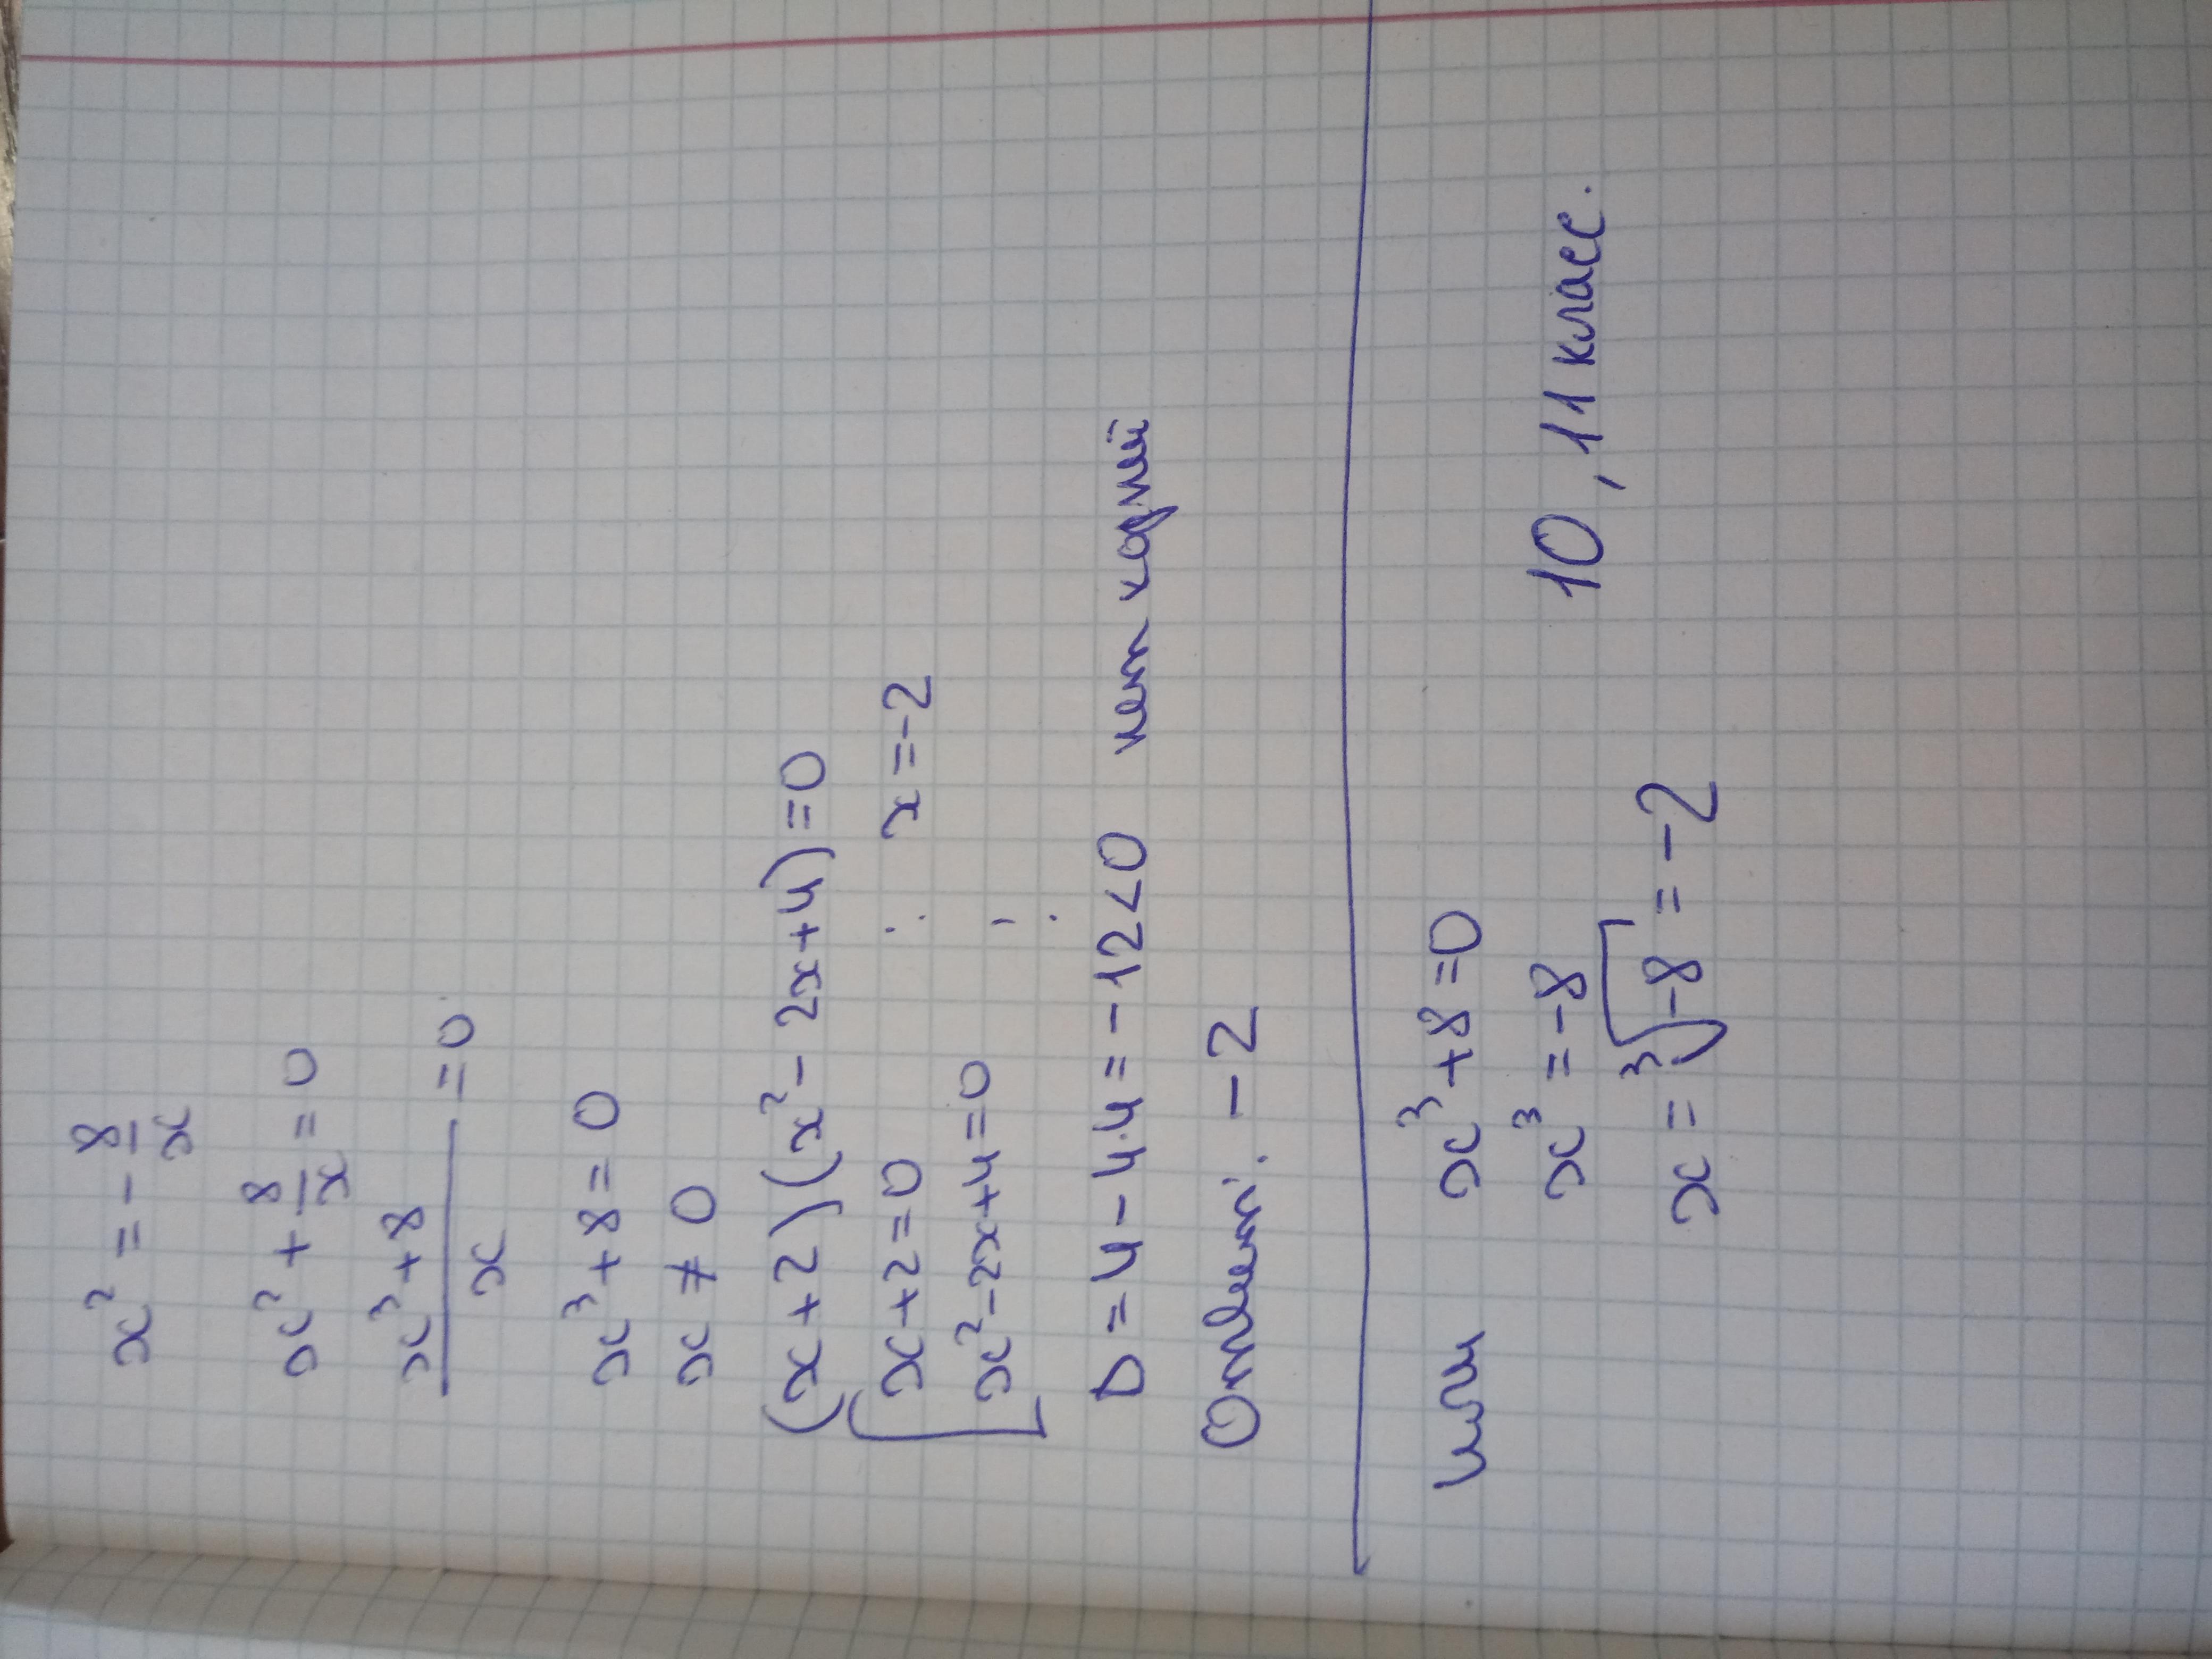 x² = - 8/x
x² + 8/x = 0
(x³+8)/x = 0
x³+8 = 0
x ≠ 0
(x+2)(x²-2x+4)=0
[x+2=0 ; x=-2
[x²-2x+4=0 ;
D=4-4·4=-12<0 нет корней
Ответ: -2
или x³+8=0
x³=-8 10, 11 класс.
x=∛-8=-2